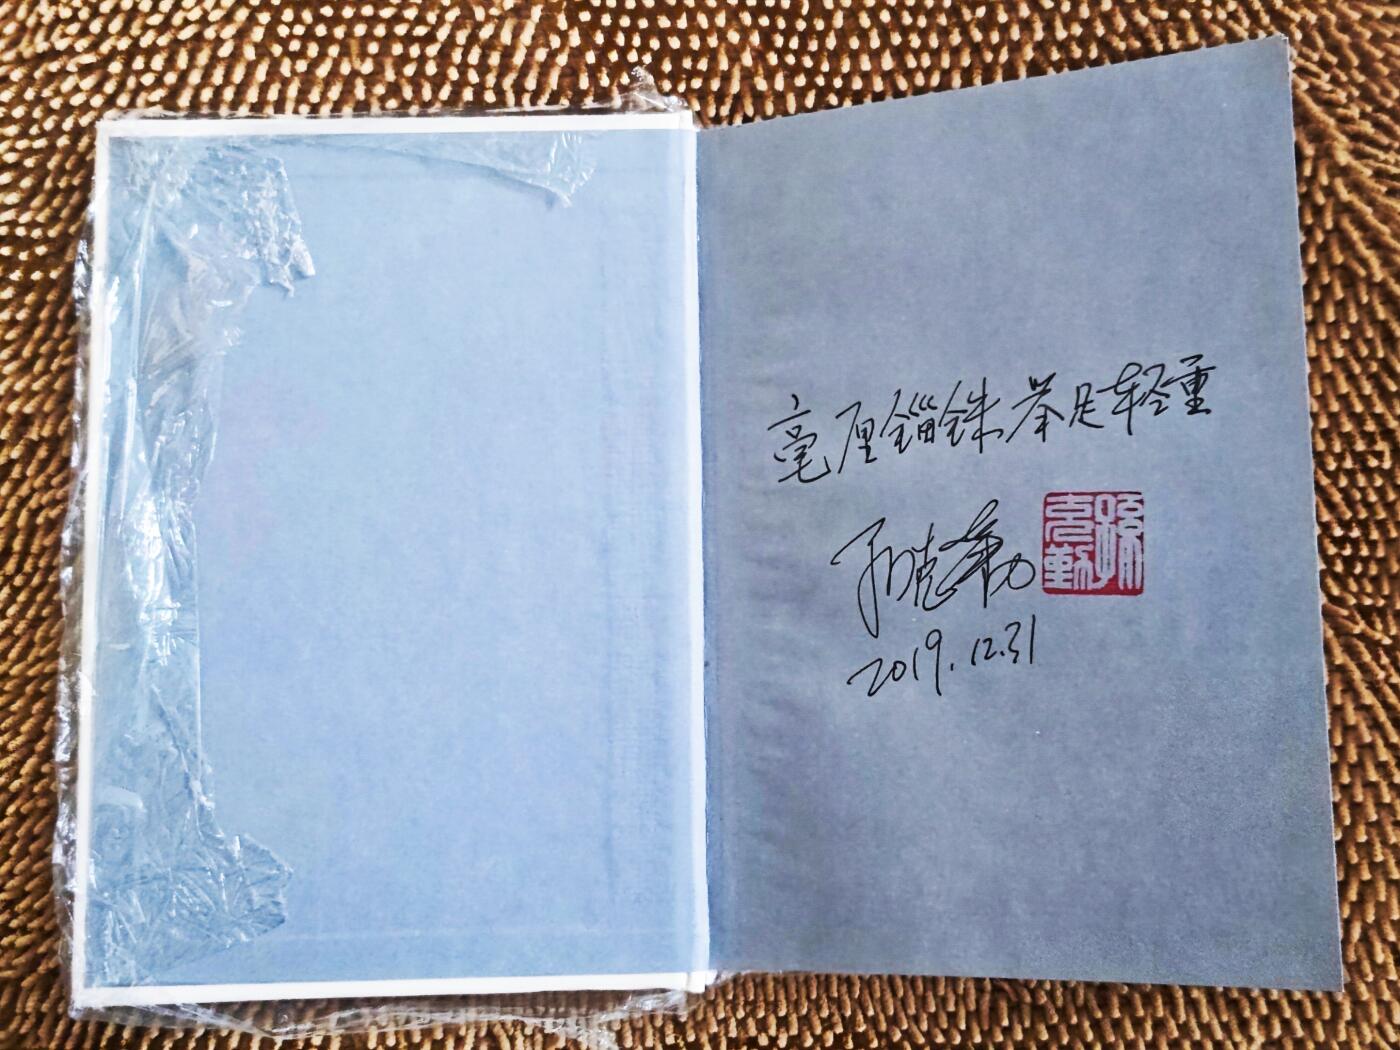 毫厘锱铢 举足轻重
孙克勤
孫克勤
2019.12.31